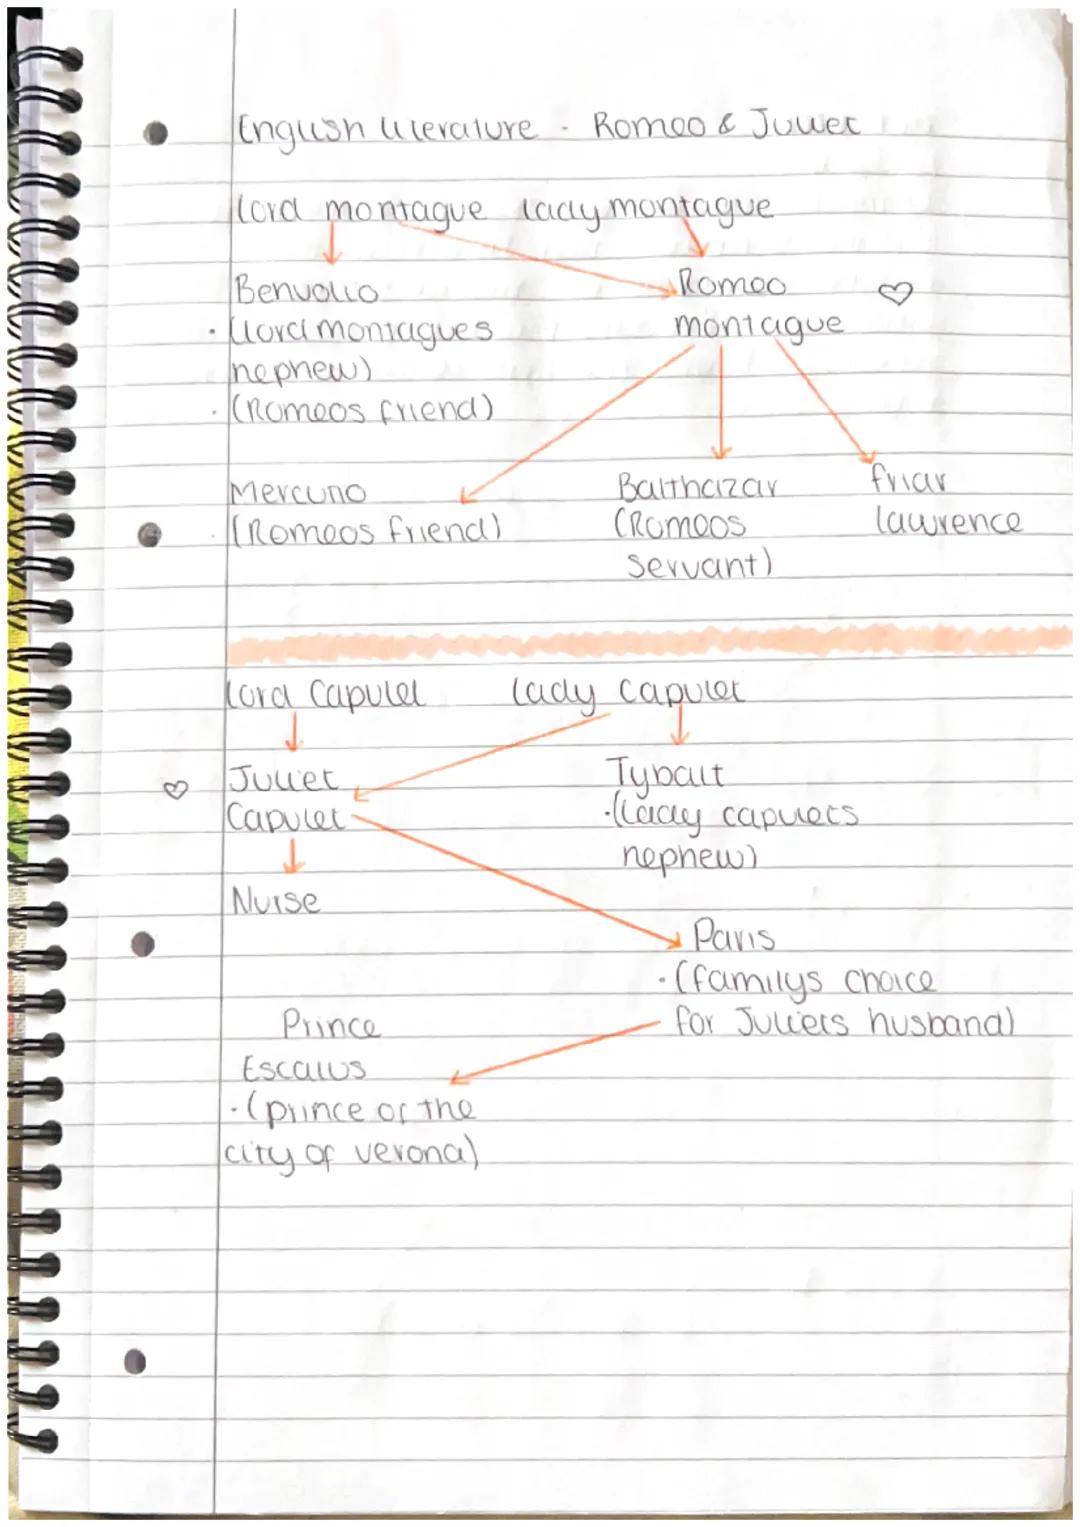 English literature - Romeo & Juliet
lord montague lady montague
Benvolio
Romeo
· (lord montagues
montague
nephew)
· (Romeos friend)
Mercutio
Balthazar
friar
· (Romeos friend)
(Romeos
lawrence
servant)
lord Capulet lady capulet
Juliet
Tybalt
Capulet
· (lady capulets
nephew)
Nurse
Paris
· (familys choice
for Juliets husband)
Prince
Escalus
· (prince of the
city of verona)